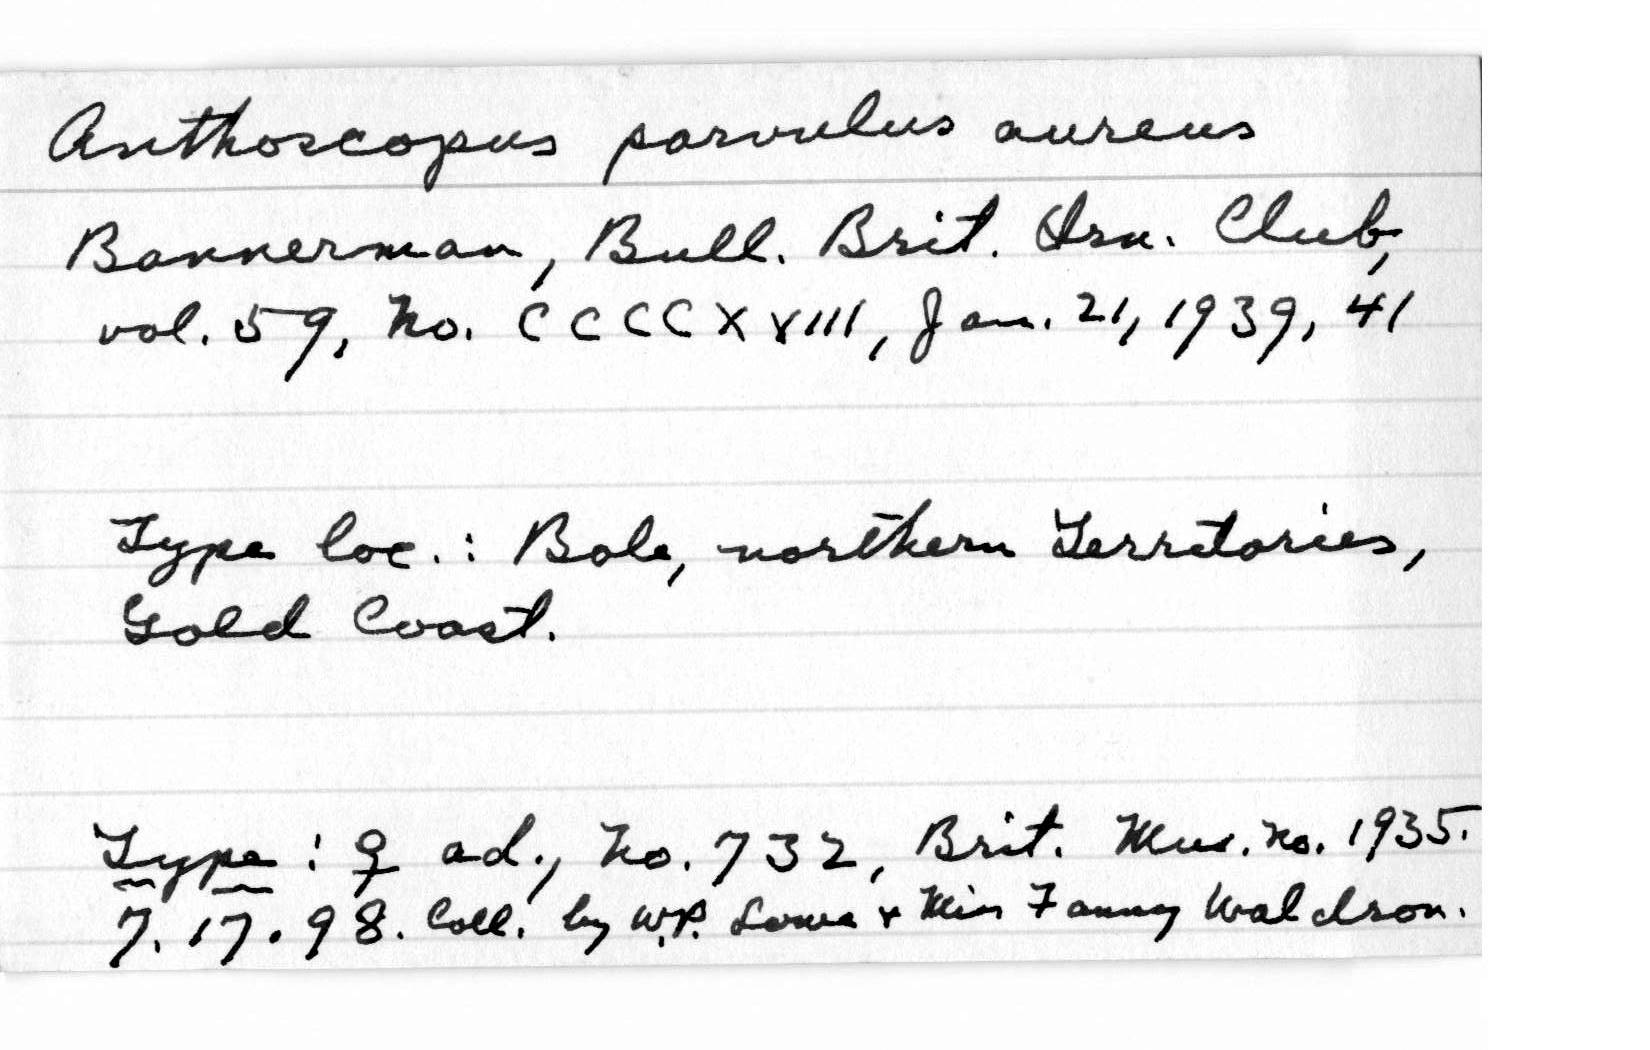 Anthoscopus parvulus aureus
Bannerman, Bull. Brit. Orn. Club,
vol. 59, No. CCCCXVIII, Jan. 21, 1939, 41
Type loc.: Bole, northern Territories,
Gold Coast.
Type: ♀ ad., No. 732, Brit. Mus. No. 1935.
7.17.98. Coll. by W.P. Lowe + Miss Fanny Waldron.